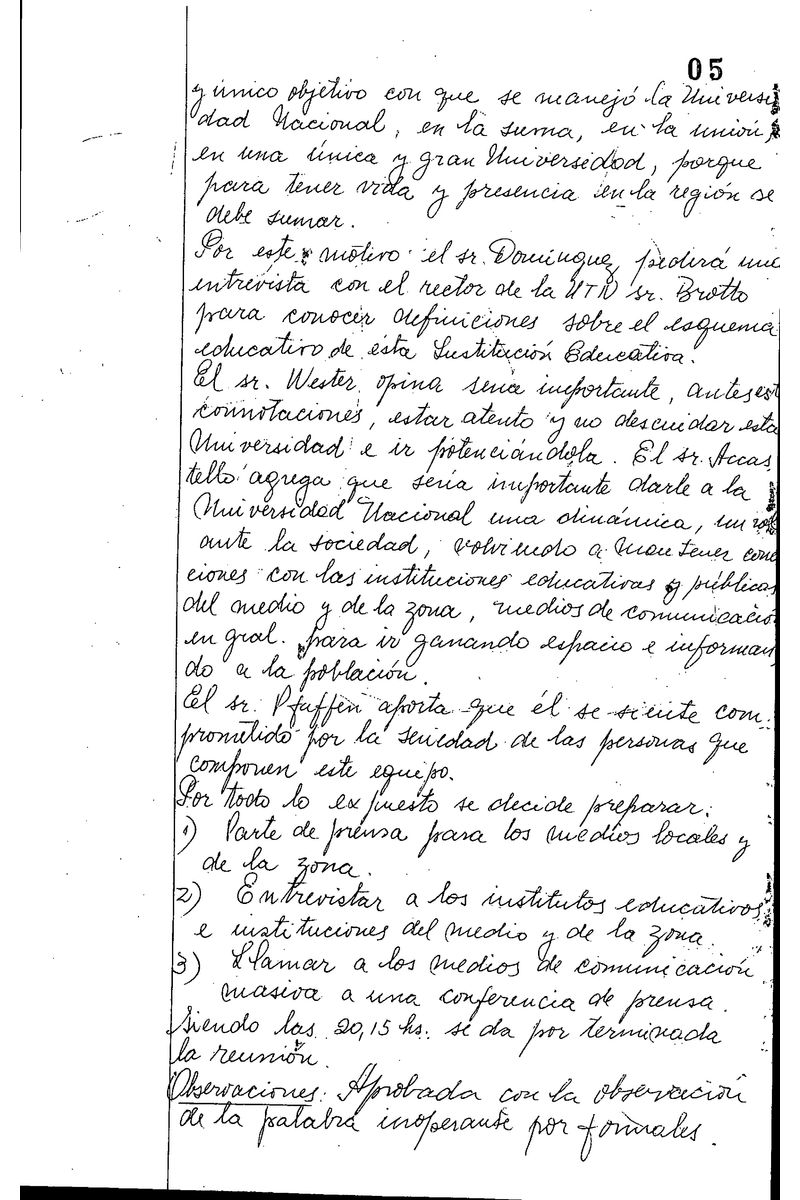 05
y único objetivo con que se manejó la Universi
dad Nacional, en la suma, en la unión,
en una única y gran Universidad, porque
para tener vida y presencia en la región se
debe sumar.
Por este motivo el sr. Dominguez pedirá una
entrevista con el rector de la UTN sr. Brotto
para conocer definiciones sobre el esquema
educativo de ésta Institución Educativa.
El sr. Wester opina sería importante, antes est
connotaciones, estar atento y no descuidar esta
Universidad e ir potenciándola. El sr. Accas
tello agrega que sería importante darle a la
Universidad Nacional una dinámica, un rol
ante la sociedad, volviendo a mantener cone
ciones con las instituciones educativas y públicas
del medio y de la zona, medios de comunicació
en gral. para ir ganando espacio e informan
do a la población.
El sr. Pfaffen aporta que él se siente com
prometido por la seriedad de las personas que
componen este equipo.
Por todo lo expuesto se decide preparar:
1) Parte de prensa para los medios locales y
de la zona.
2) Entrevistar a los institutos educativos
e instituciones del medio y de la zona
3) Llamar a los medios de comunicación
masiva a una conferencia de prensa.
Siendo las 20,15 hs. se da por terminada
la reunión.
Observaciones: Aprobada con la observación
de la palabra inoperante por formales.